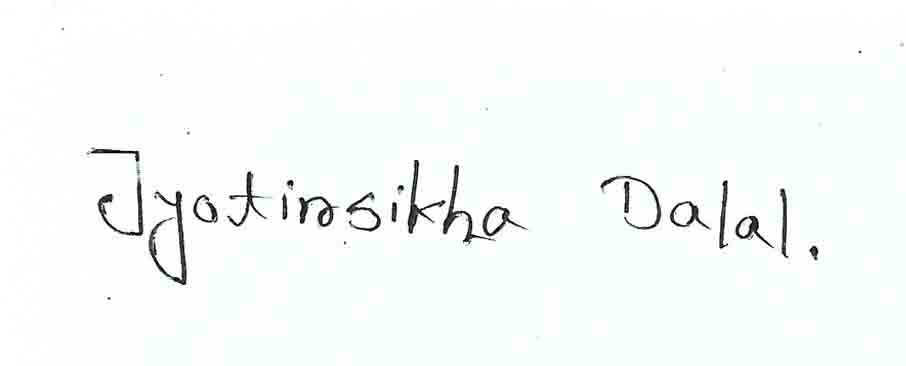 Jyotirsikha Dalal.